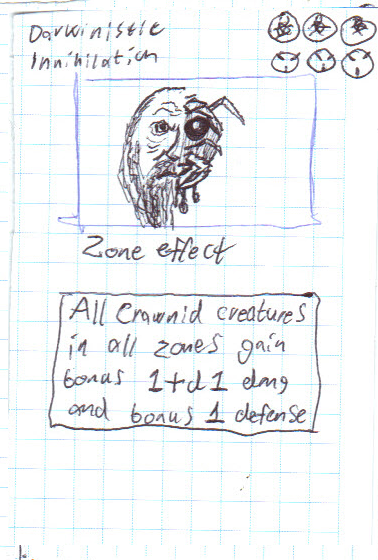 Darwinistic
Innihilation
Zone effect
All Crawnid creatures
in all zones gain
bonus 1+d1 dmg
and bonus 1 defense